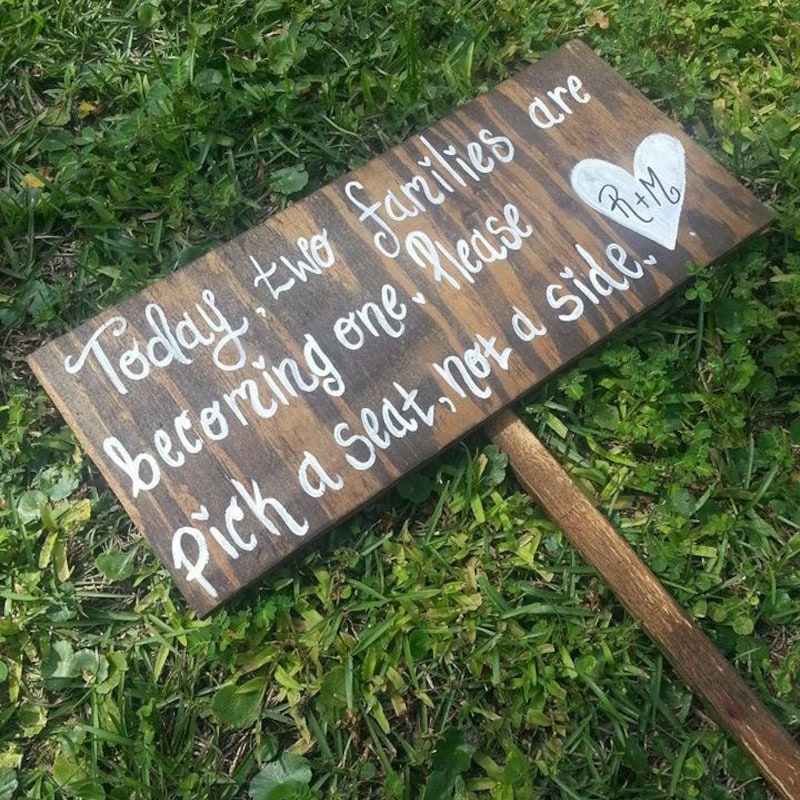 Today, two families are
becoming one. Please
Pick a seat, not a side.
R+M